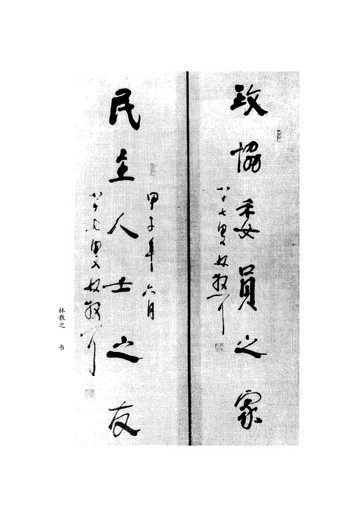 政協委員之家
八十七叟林散耳
民主人士之友
甲子年六月
八十七叟林散耳
林散之 书